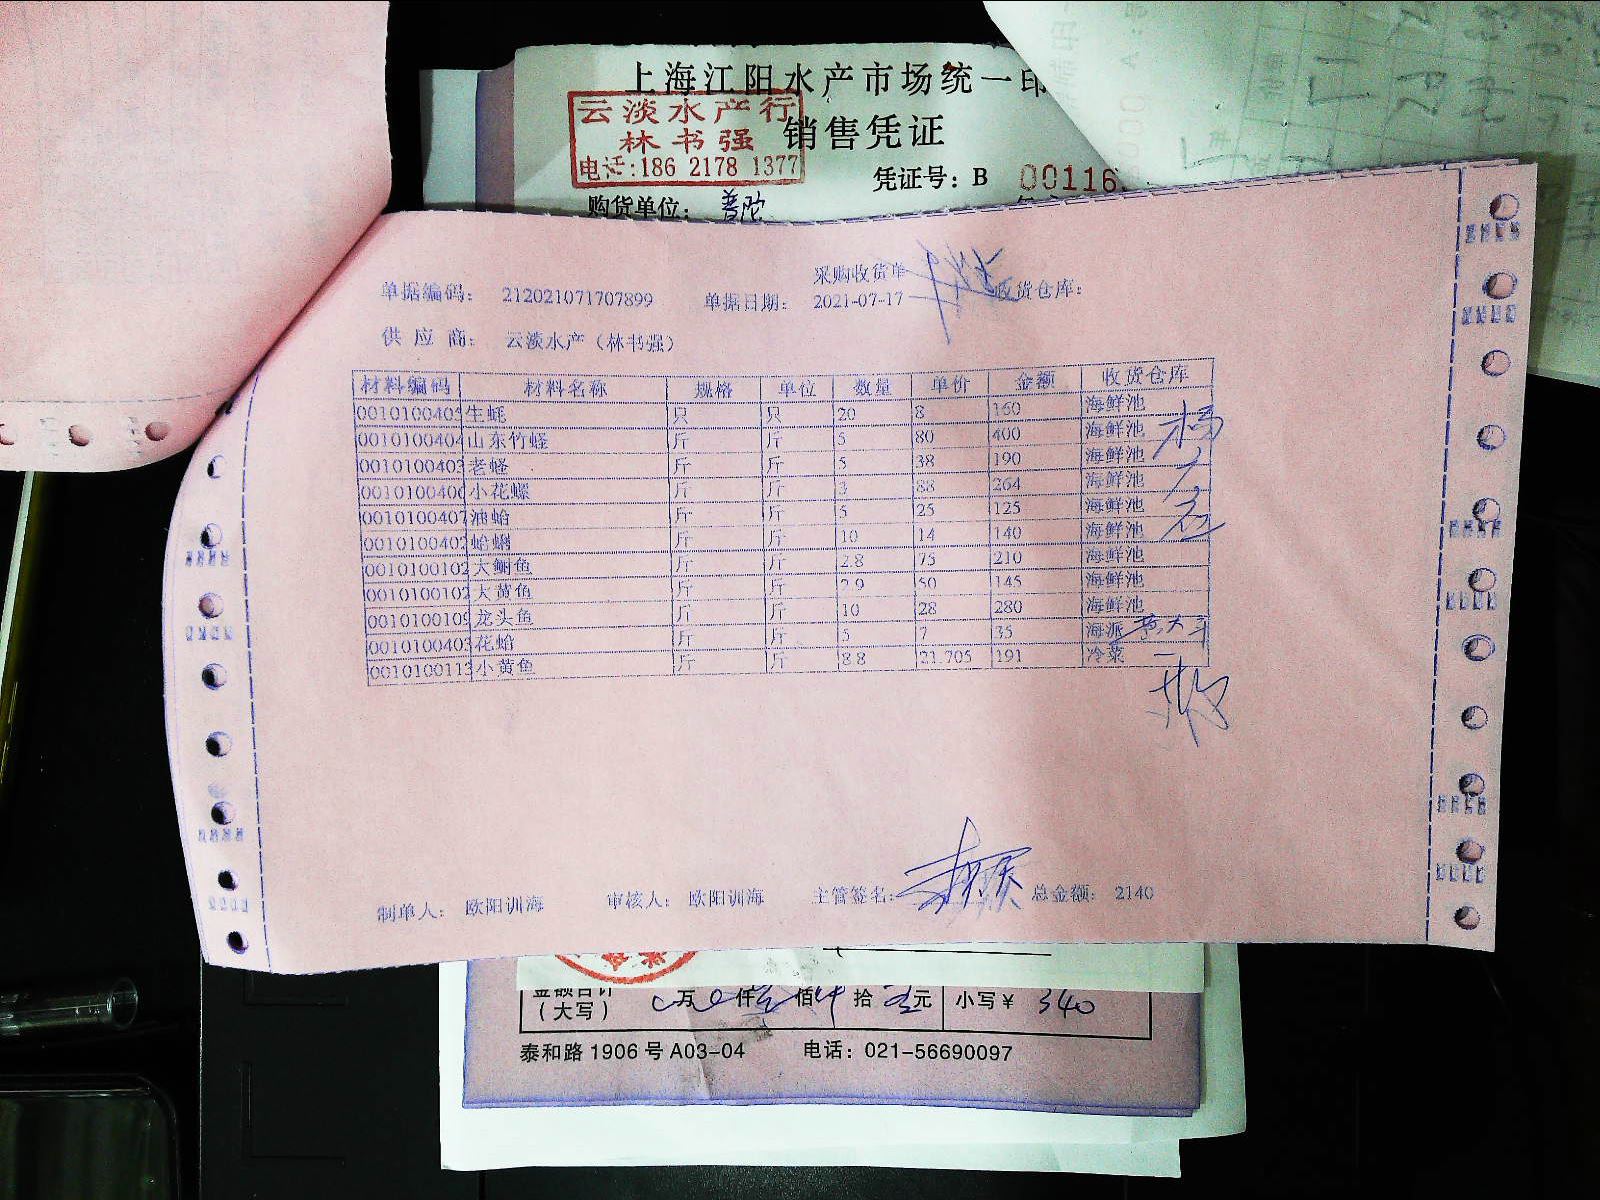 上海江阳水产市场统一印
云淡水产行
林书强
电话:186 2178 1377
销售凭证
凭证号: B 00116
购货单位: 普陀
采购收货单
单据编码: 212021071707899 单据日期: 2021-07-17 收货仓库:
供应商: 云淡水产（林书强）
材料编码 材料名称 规格 单位 数量 单价 金额 收货仓库
0010100405 生蚝 只 只 20 8 160 海鲜池
0010100404 山东竹蛏 斤 斤 5 80 400 海鲜池
0010100403 老蛏 斤 斤 5 38 190 海鲜池
0010100406 小花螺 斤 斤 3 88 264 海鲜池
0010100407 油蛤 斤 斤 5 25 125 海鲜池
0010100402 蛤蜊 斤 斤 10 14 140 海鲜池
0010100102 大鲷鱼 斤 斤 2.8 75 210 海鲜池
0010100102 大黄鱼 斤 斤 2.9 50 145 海鲜池
0010100109 龙头鱼 斤 斤 10 28 280 海鲜池
0010100403 花蛤 斤 斤 5 7 35 海派
0010100113 小黄鱼 斤 斤 8.8 21.705 191 冷菜
制单人: 欧阳训海 审核人: 欧阳训海 主管签名: 总金额: 2140
金额合计
（大写） 万 仟 佰 拾 元 小写￥ 340
泰和路1906号A03-04 电话: 021-56690097